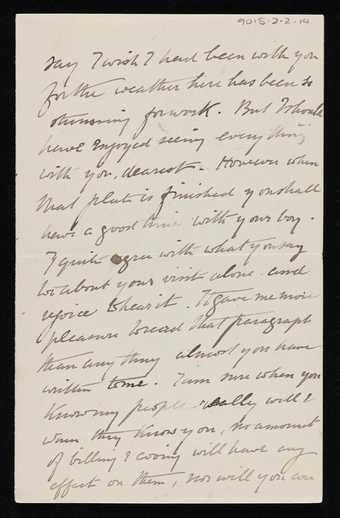 9015-2-2-14
say I wish I had been with you
for the weather here has been so
stunning for work. But I should
have enjoyed seeing everything
with you, dearest. However when
that plate is finished you shall
have a good time with your boy.
I quite agree with what you say
about your visit alone and
rejoice to hear it. It gave me more
pleasure to read that paragraph
than anything almost you have
written to me. I am sure when you
know my people really well &
when they know you, no amount
of billing & cooing will have any
effect on them, nor will you care